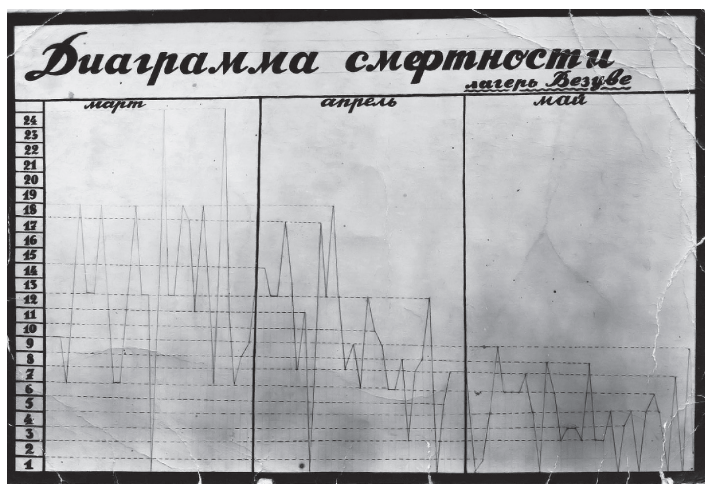 Диаграмма смертности
лагерь Везуве
март апрель май
24
23
22
21
20
19
18
17
16
15
14
13
12
11
10
9
8
7
6
5
4
3
2
1